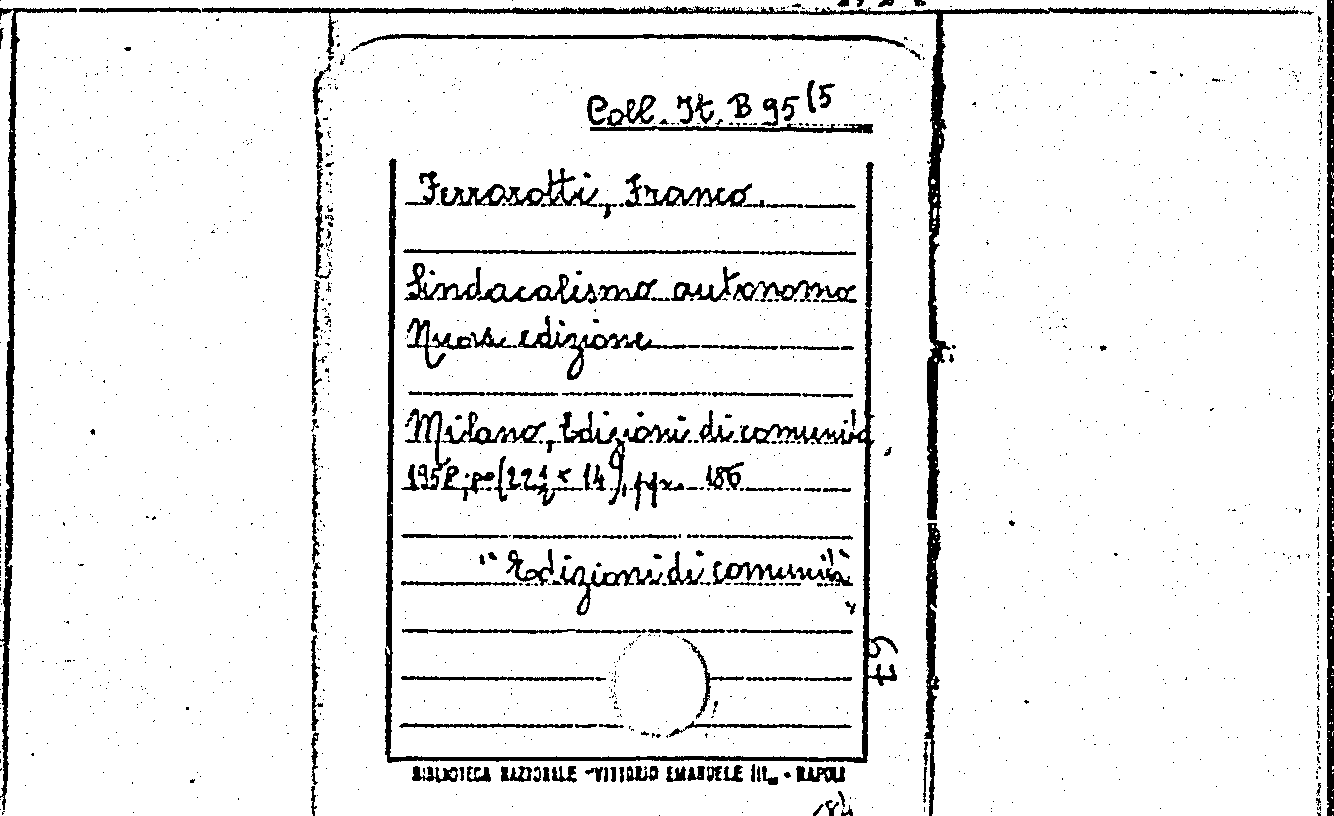 Coll. It. B 95 (5
Ferrarotti, Franco.
Sindacalismo autonomo
Nuova edizione
Milano, Edizioni di comunità,
1958, (22½ × 14), 186
"Edizioni di comunità"
BIBLIOTECA NAZIONALE "VITTORIO EMANUELE III" - NAPOLI